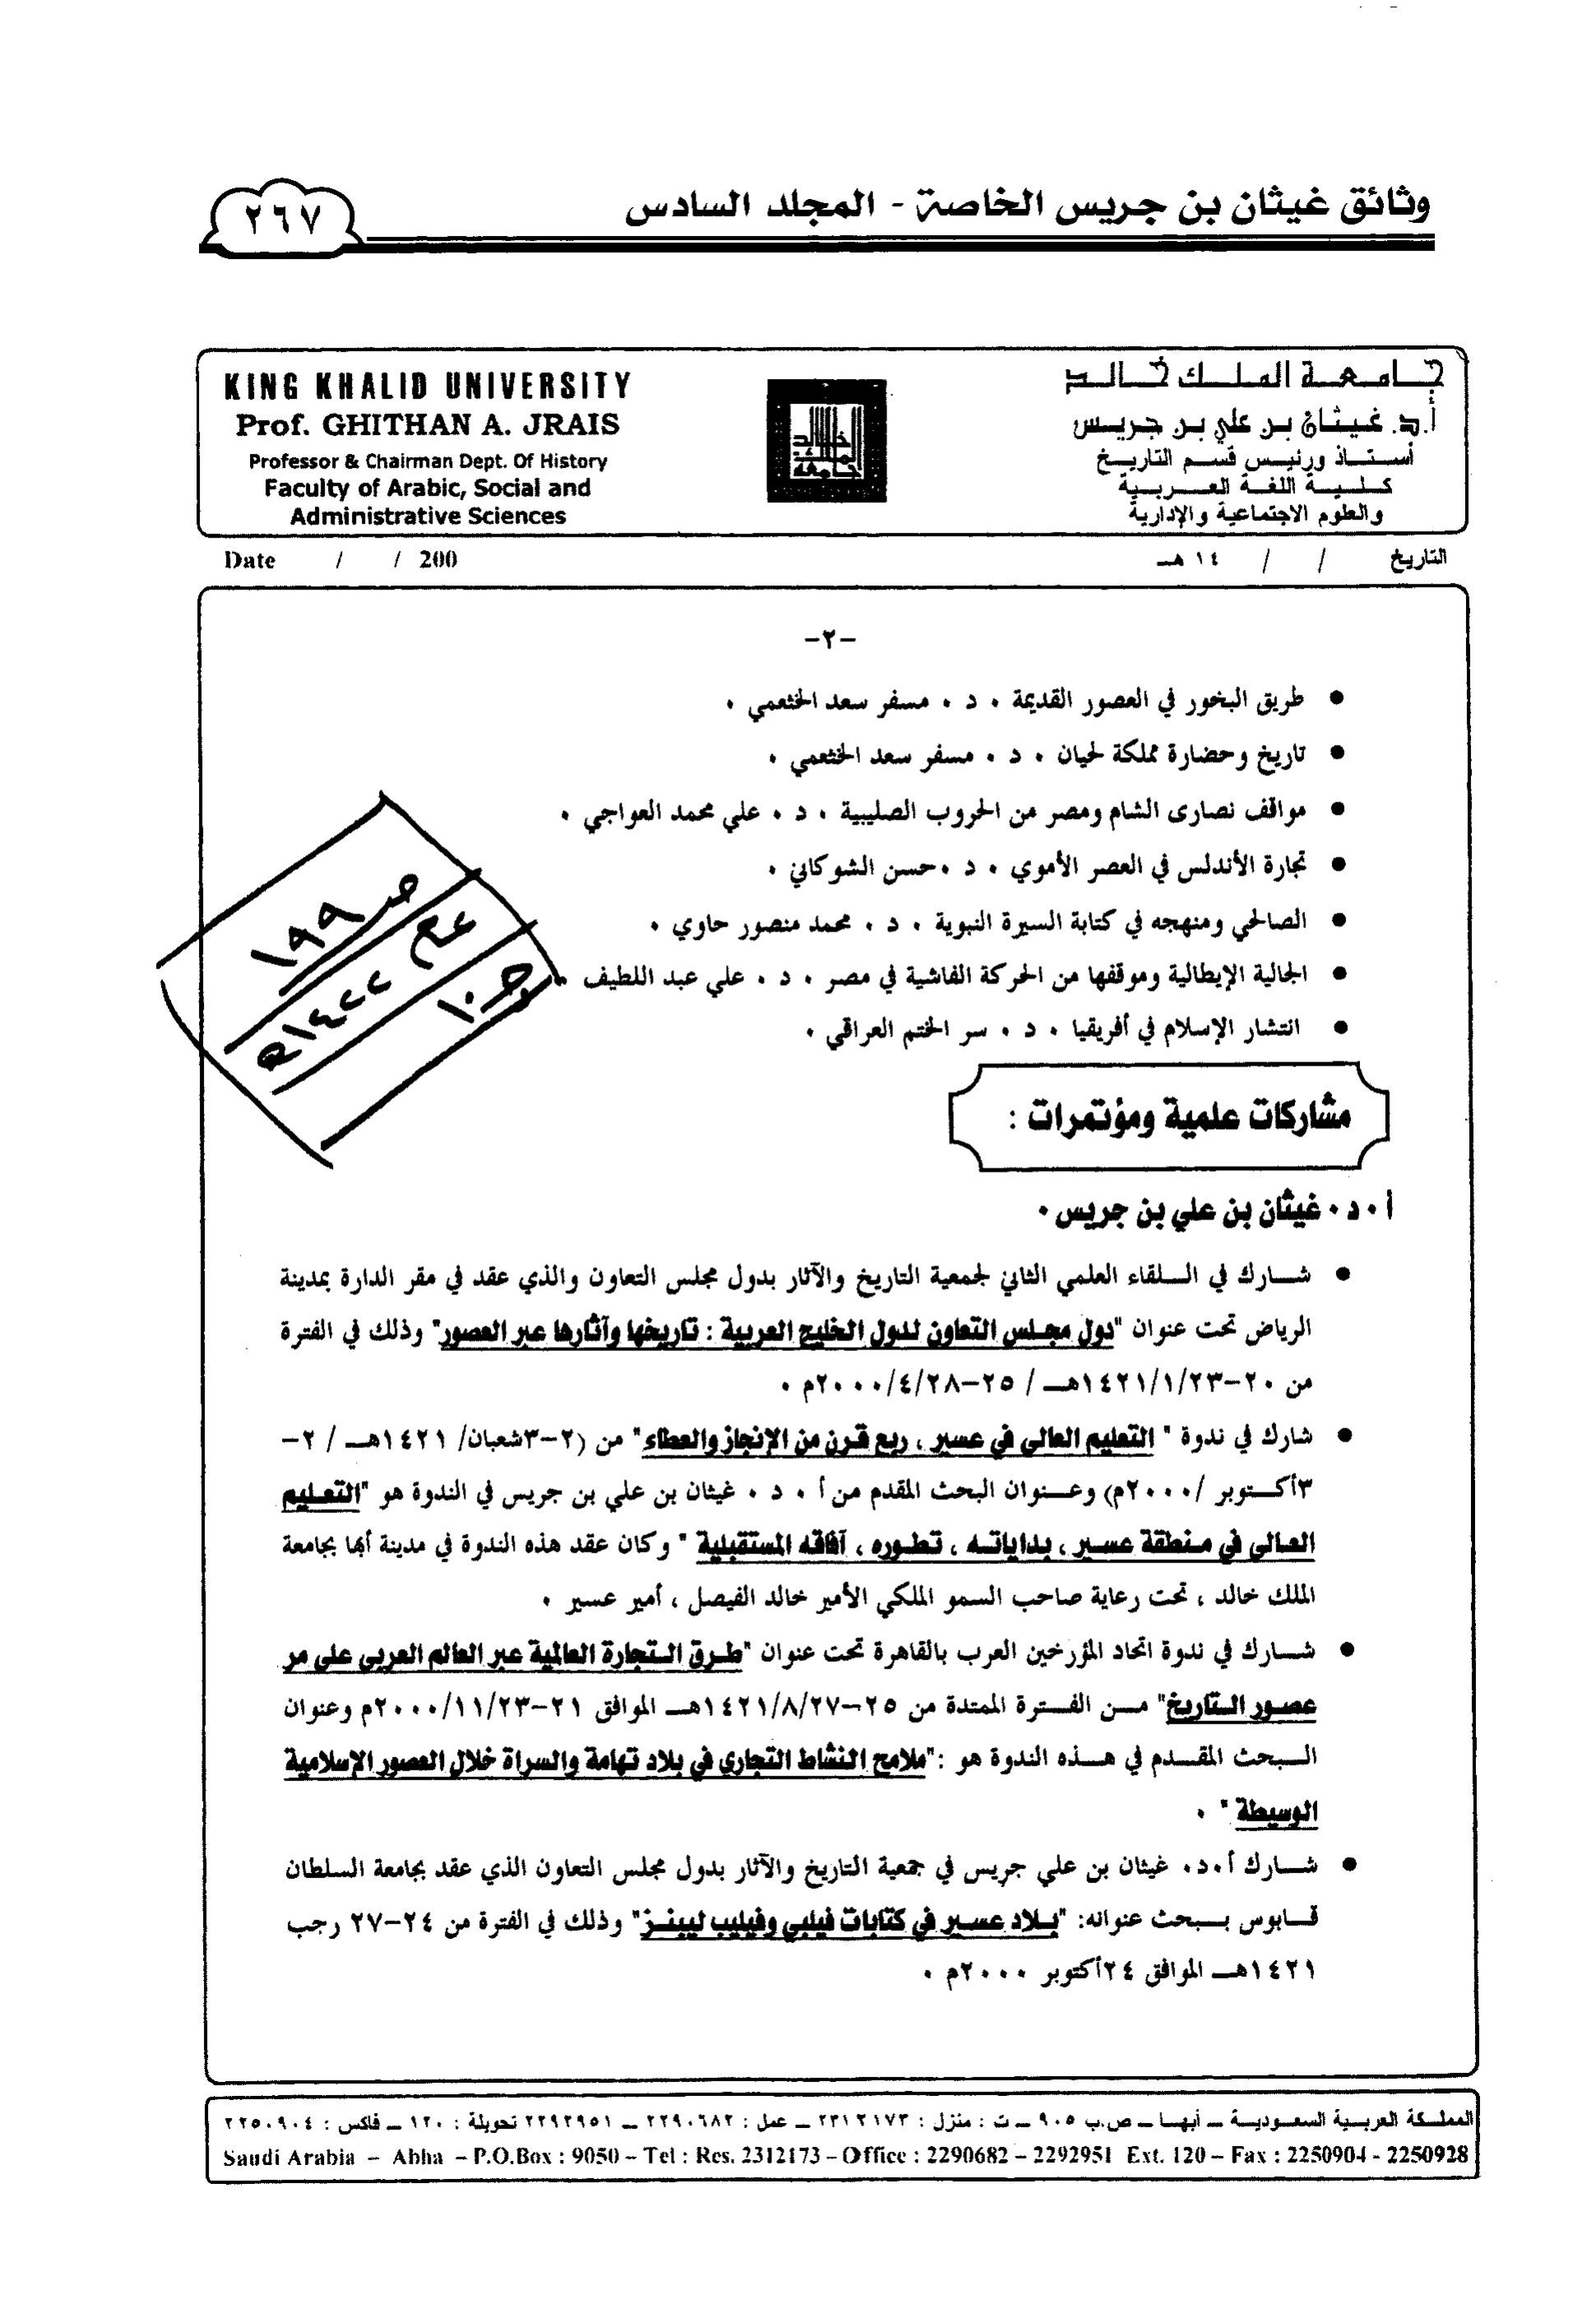 وثائق غيثان بن جريس الخاصة - المجلد السادس
٢٦٧
KING KHALID UNIVERSITY
Prof. GHITHAN A. JRAIS
Professor & Chairman Dept. Of History
Faculty of Arabic, Social and
Administrative Sciences
جامعة الملك خالد
جامعة الملك خالد
أ.د. غيثان بن علي بن جريس
أستاذ ورئيس قسم التاريخ
كلية اللغة العربية
والعلوم الاجتماعية والإدارية
Date / / 200
التاريخ / / ١٤ هـ
-٢-
• طريق البخور في العصور القديمة . د . مسفر سعد الخثعمي .
• تاريخ وحضارة مملكة لحيان . د . مسفر سعد الخثعمي .
• مواقف نصارى الشام ومصر من الحروب الصليبية . د . علي محمد العواجي .
• تجارة الأندلس في العصر الأموي . د . حسن الشوكاني .
• الصالحي ومنهجه في كتابة السيرة النبوية . د . محمد منصور حاوي .
• الجالية الإيطالية وموقفها من الحركة الفاشية في مصر . د . علي عبد اللطيف .
• انتشار الإسلام في أفريقيا . د . سر الختم العراقي .
صـ ١٩٩
عـ ع ١٤٢٢هـ
جـ ١٠
مشاركات علمية ومؤتمرات :
أ . د . غيثان بن علي بن جريس .
• شارك في اللقاء العلمي الثاني لجمعية التاريخ والآثار بدول مجلس التعاون والذي عقد في مقر الدارة بمدينة
الرياض تحت عنوان "دول مجلس التعاون لدول الخليج العربية : تاريخها وآثارها عبر العصور" وذلك في الفترة
من ٢٠-١٤٢١/١/٢٣هـ / ٢٥-٢٠٠٠/٤/٢٨م .
• شارك في ندوة " التعليم العالي في عسير ، ربع قرن من الإنجاز والعطاء" من (٢-٣شعبان/ ١٤٢١هـ / ٢-
٣أكتوبر /٢٠٠٠م) وعنوان البحث المقدم من أ . د . غيثان بن علي بن جريس في الندوة هو "التعليم
العالي في منطقة عسير ، بداياته ، تطوره ، آفاقه المستقبلية " وكان عقد هذه الندوة في مدينة أبها بجامعة
الملك خالد ، تحت رعاية صاحب السمو الملكي الأمير خالد الفيصل ، أمير عسير .
• شارك في ندوة اتحاد المؤرخين العرب بالقاهرة تحت عنوان "طرق التجارة العالمية عبر العالم العربي على مر
عصور التاريخ" من الفترة الممتدة من ٢٥-١٤٢١/٨/٢٧هـ الموافق ٢١-٢٠٠٠/١١/٢٣م وعنوان
البحث المقدم في هذه الندوة هو :"ملامح النشاط التجاري في بلاد تهامة والسراة خلال العصور الإسلامية
الوسيطة " .
• شارك أ.د. غيثان بن علي جريس في جمعية التاريخ والآثار بدول مجلس التعاون الذي عقد بجامعة السلطان
قابوس ببحث عنوانه: "بلاد عسير في كتابات فيلبي وفيليب ليبنز" وذلك في الفترة من ٢٤-٢٧ رجب
١٤٢١هـ الموافق ٢٤أكتوبر ٢٠٠٠م .
المملكة العربية السعودية – أبها – ص.ب ٩٠٥ – ت : منزل : ٢٣١٢١٧٣ – عمل : ٢٢٩٠٦٨٢ – ٢٢٩٢٩٥١ تحويلة : ١٢٠ – فاكس : ٢٢٥٠٩٠٤
Saudi Arabia – Abha – P.O.Box : 9050 – Tel : Res. 2312173 – Office : 2290682 – 2292951 Ext. 120 – Fax : 2250904 - 2250928